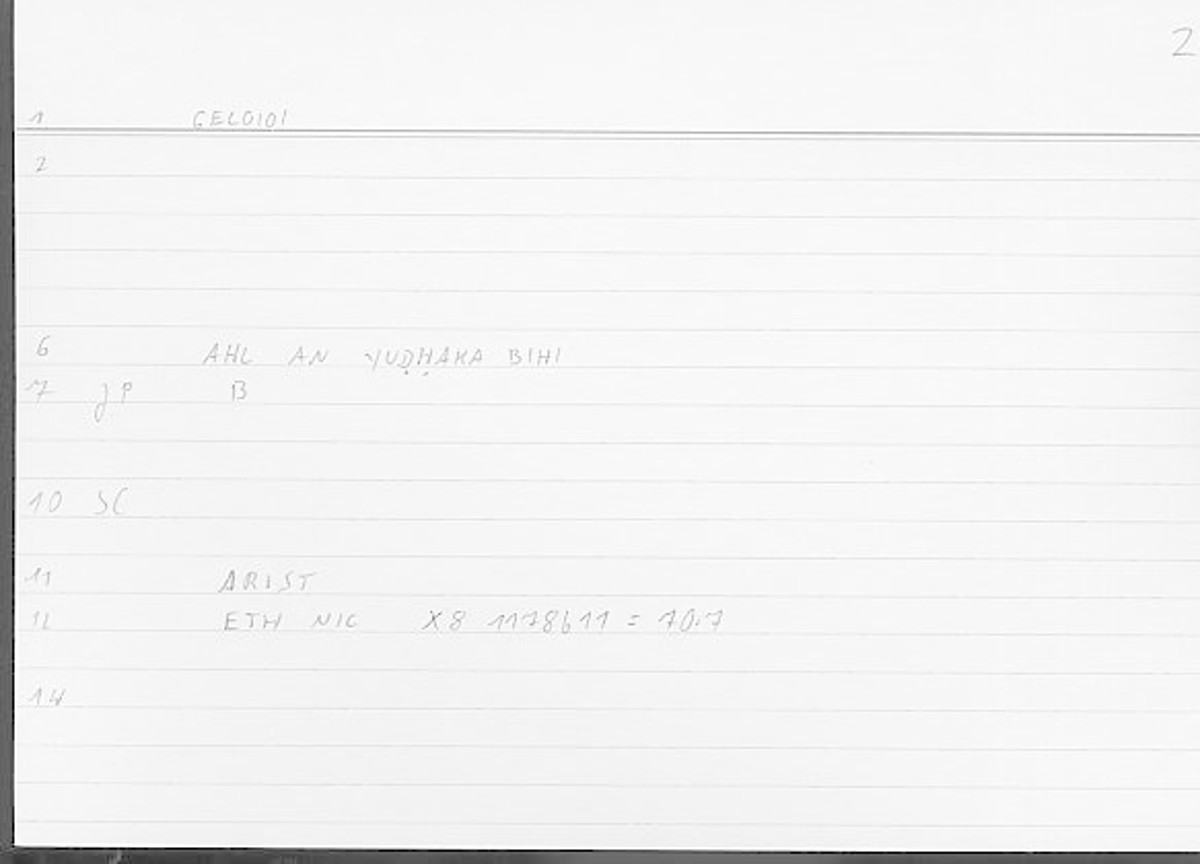 2
1 GELOIOI
2
6 AHL AN YUḌḤAKA BIHI
7 JP B
10 SC
11 ARIST
12 ETH NIC X8 1178b11 = 10.7
14